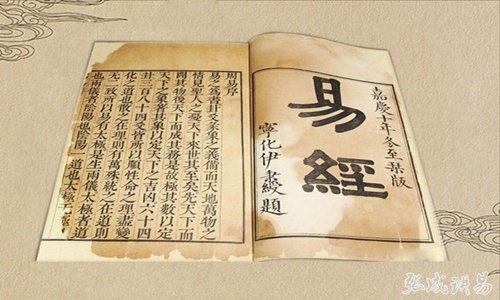 嘉慶十年冬至琹版
易經
寧化伊秉綬題
周易序
易之為書卦爻彖象之義備而天地萬物之
情見聖人之憂天下來世其至矣先天下而
開其物後天下而成其務是故極其數以定
天下之象著其象以定天下之吉凶六十四
卦三百八十四爻皆所以順性命之理盡變
化之道也散之在理則有萬殊統之在道則
无二致所以易有太極是生兩儀太極者道
也兩儀者陰陽也陰陽一道也太極无
讲易